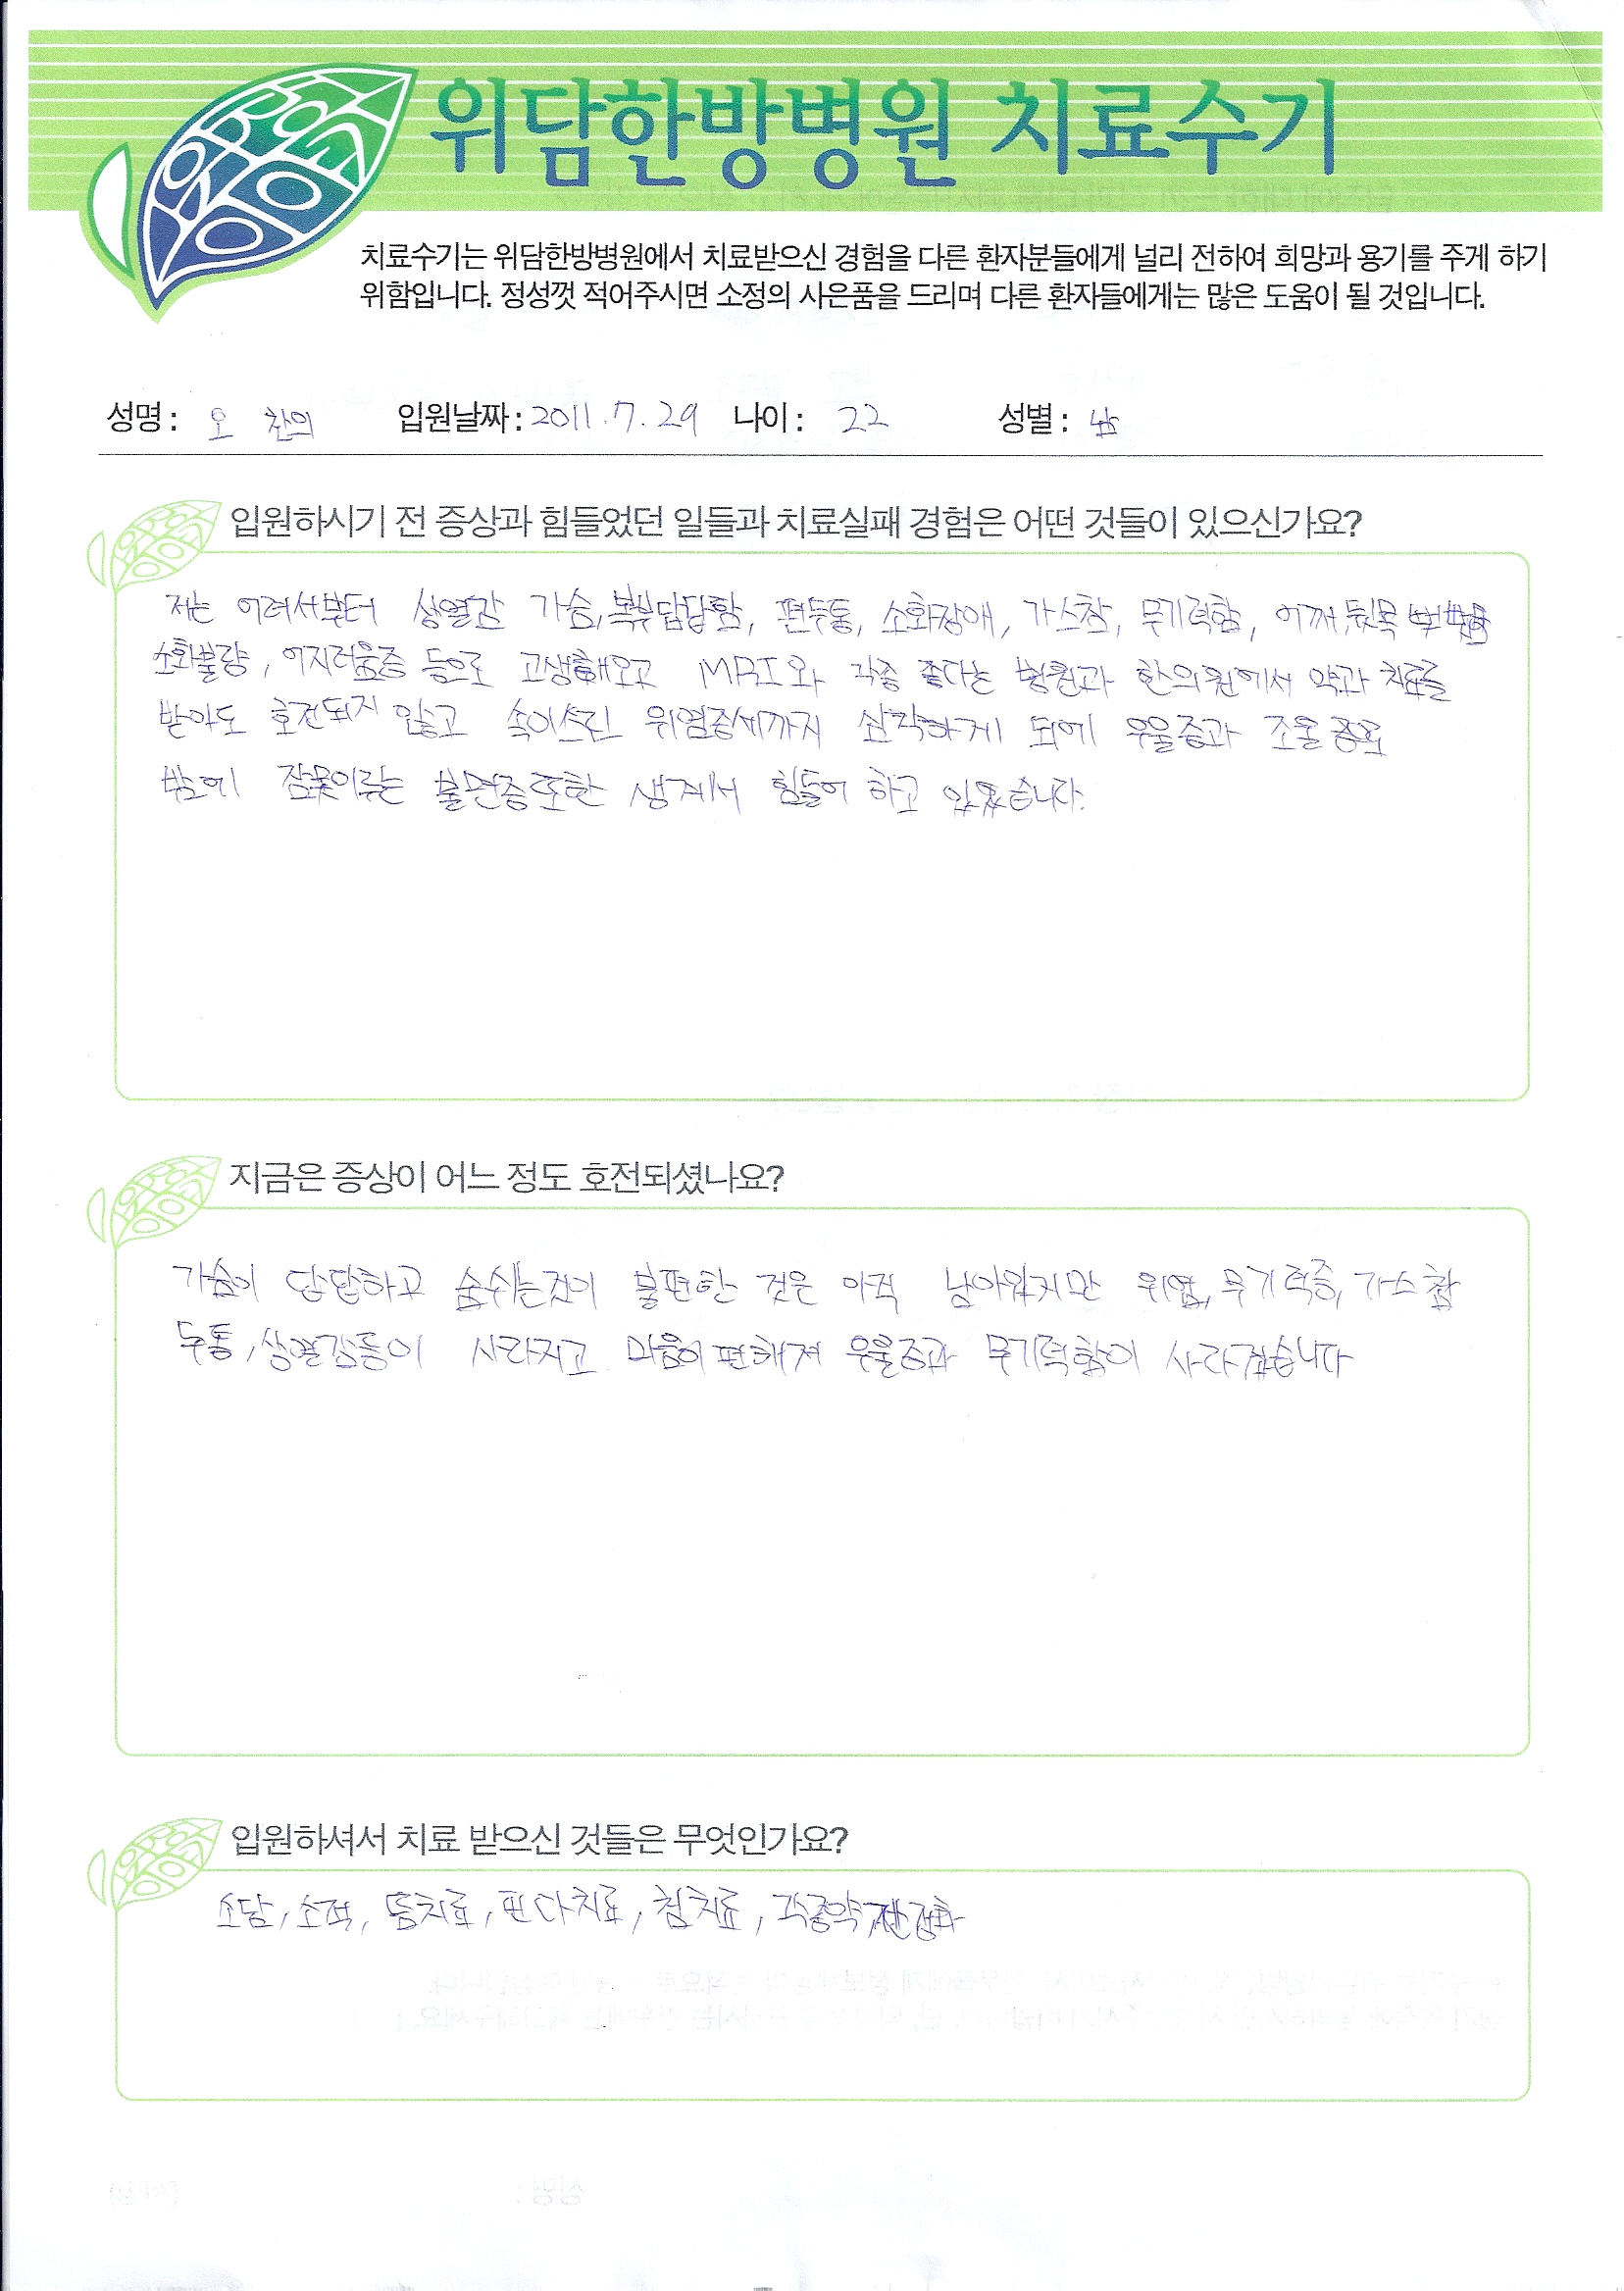 위담한방병원 치료수기
치료수기는 위담한방병원에서 치료받으신 경험을 다른 환자분들에게 널리 전하여 희망과 용기를 주게 하기
위함입니다. 정성껏 적어주시면 소정의 사은품을 드리며 다른 환자들에게는 많은 도움이 될 것입니다.
성명 : 오 찬의 입원날짜 : 2011.7.29 나이 : 22 성별 : 남
입원하시기 전 증상과 힘들었던 일들과 치료실패 경험은 어떤 것들이 있으신가요?
저는 어려서부터 상열감 가슴,복부답답함, 편두통, 소화장애, 가스참, 무기력함, 어깨,뒷목
소화불량, 어지러움증 등으로 고생해오고 MRI와 각종 좋다는 병원과 한의원에서 약과 치료를
받아도 호전되지 않고 속이쓰린 위염증세까지 심각하게 되에 우울증과 조울증으로
밤에 잠못이루는 불면증또한 생겨서 힘들어 하고 있었습니다.
지금은 증상이 어느 정도 호전되셨나요?
가슴이 답답하고 숨쉬는것이 불편한 것은 아직 남아있지만 위염, 무기력증, 가스참
두통, 상열감등이 사라지고 마음이 편해져 우울증과 무기력함이 사라졌습니다
입원하셔서 치료 받으신 것들은 무엇인가요?
소담, 소적, 통치료, 판다치료, 침치료, 각종약